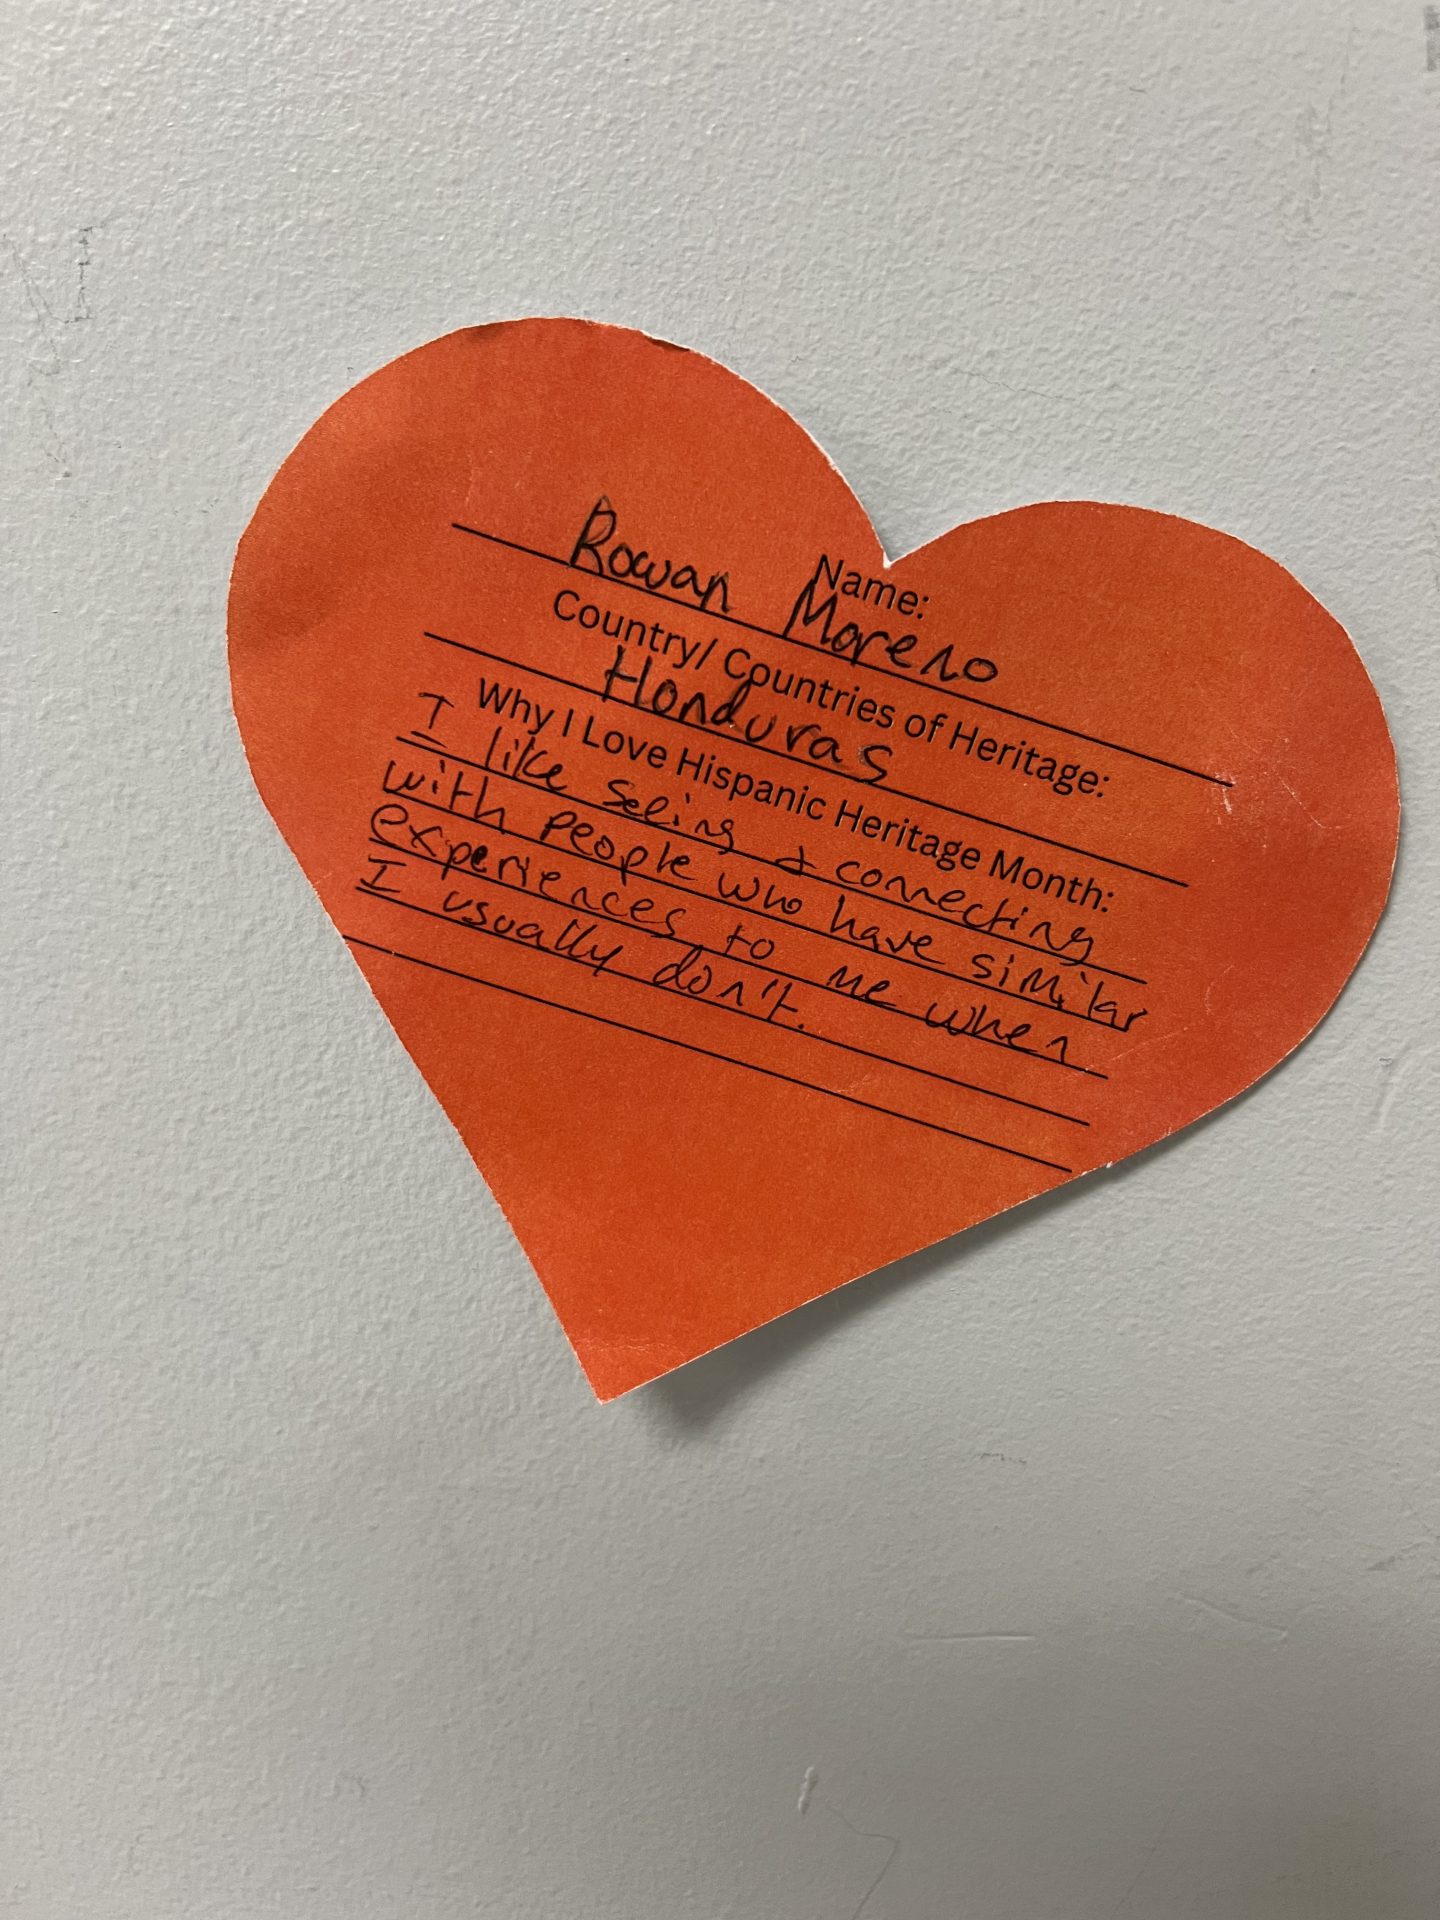 Name:
Rowan Moreno
Country/ Countries of Heritage:
Honduras
Why I Love Hispanic Heritage Month:
I like seeing & connecting
with people who have similar
experiences to me when
I usually don't.